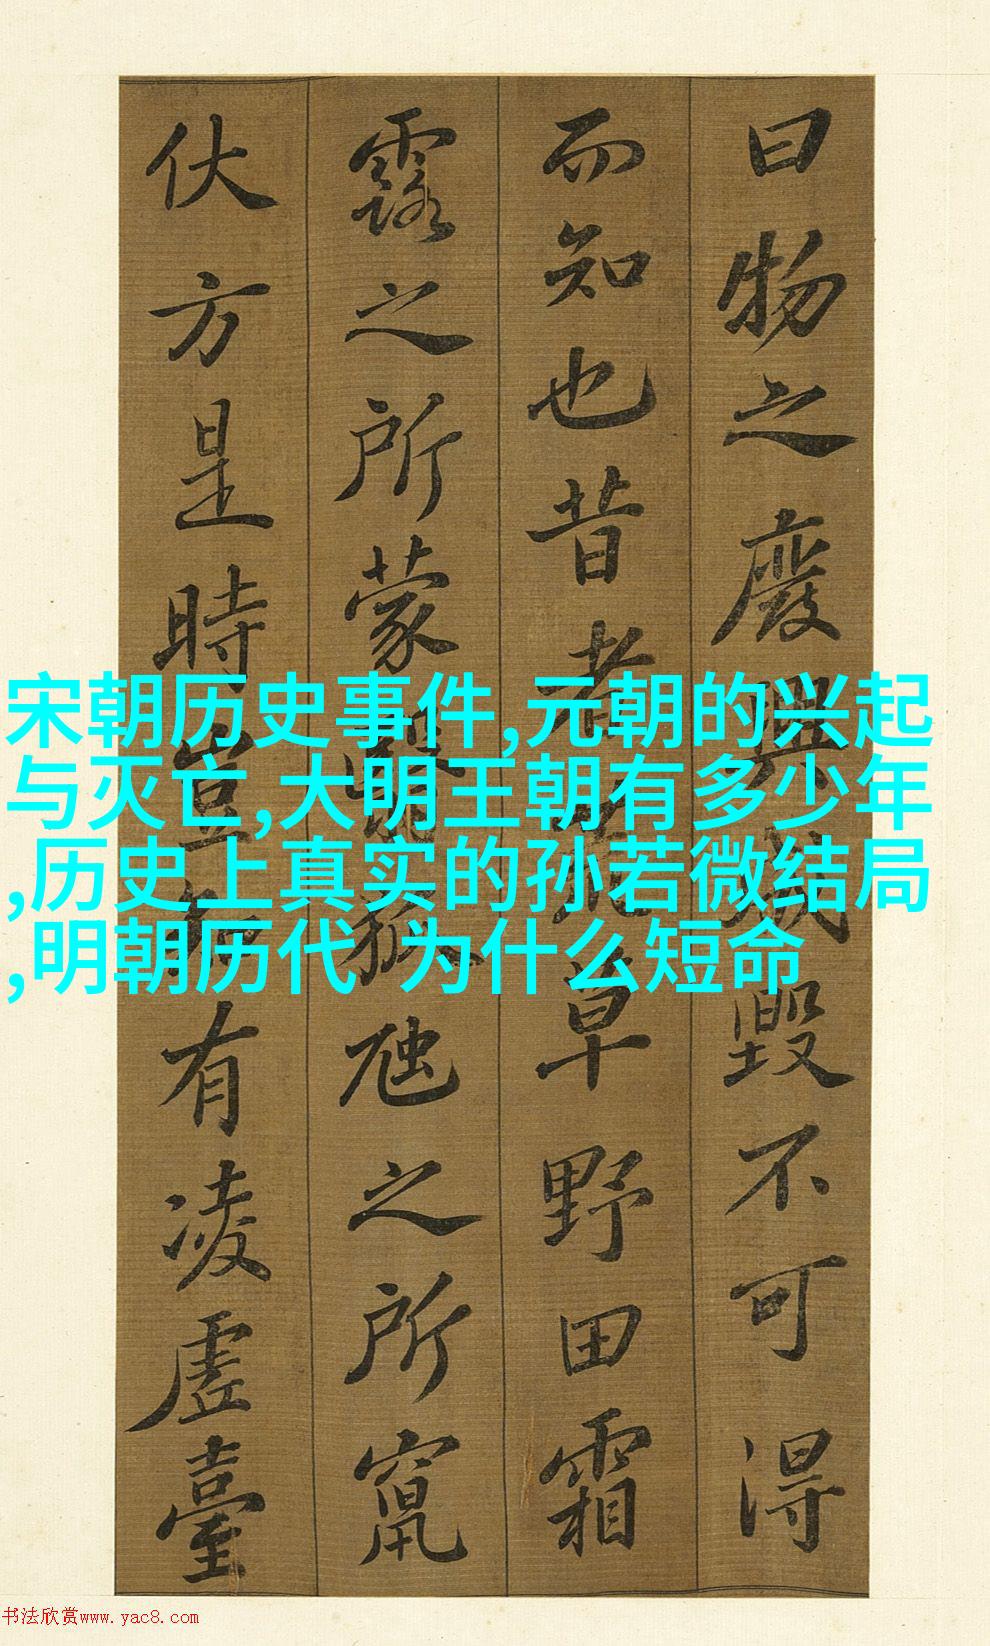 曰物之廢興成毀不可得
而知也昔者荒草野田霜
露之所蒙翳狐虺之所竄
伏方是時豈知有凌虛臺
宋朝历史事件,元朝的兴起
与灭亡,大明王朝有多少年
,历史上真实的孙若微结局
,明朝历代 为什么短命
书法欣赏www.yac8.com